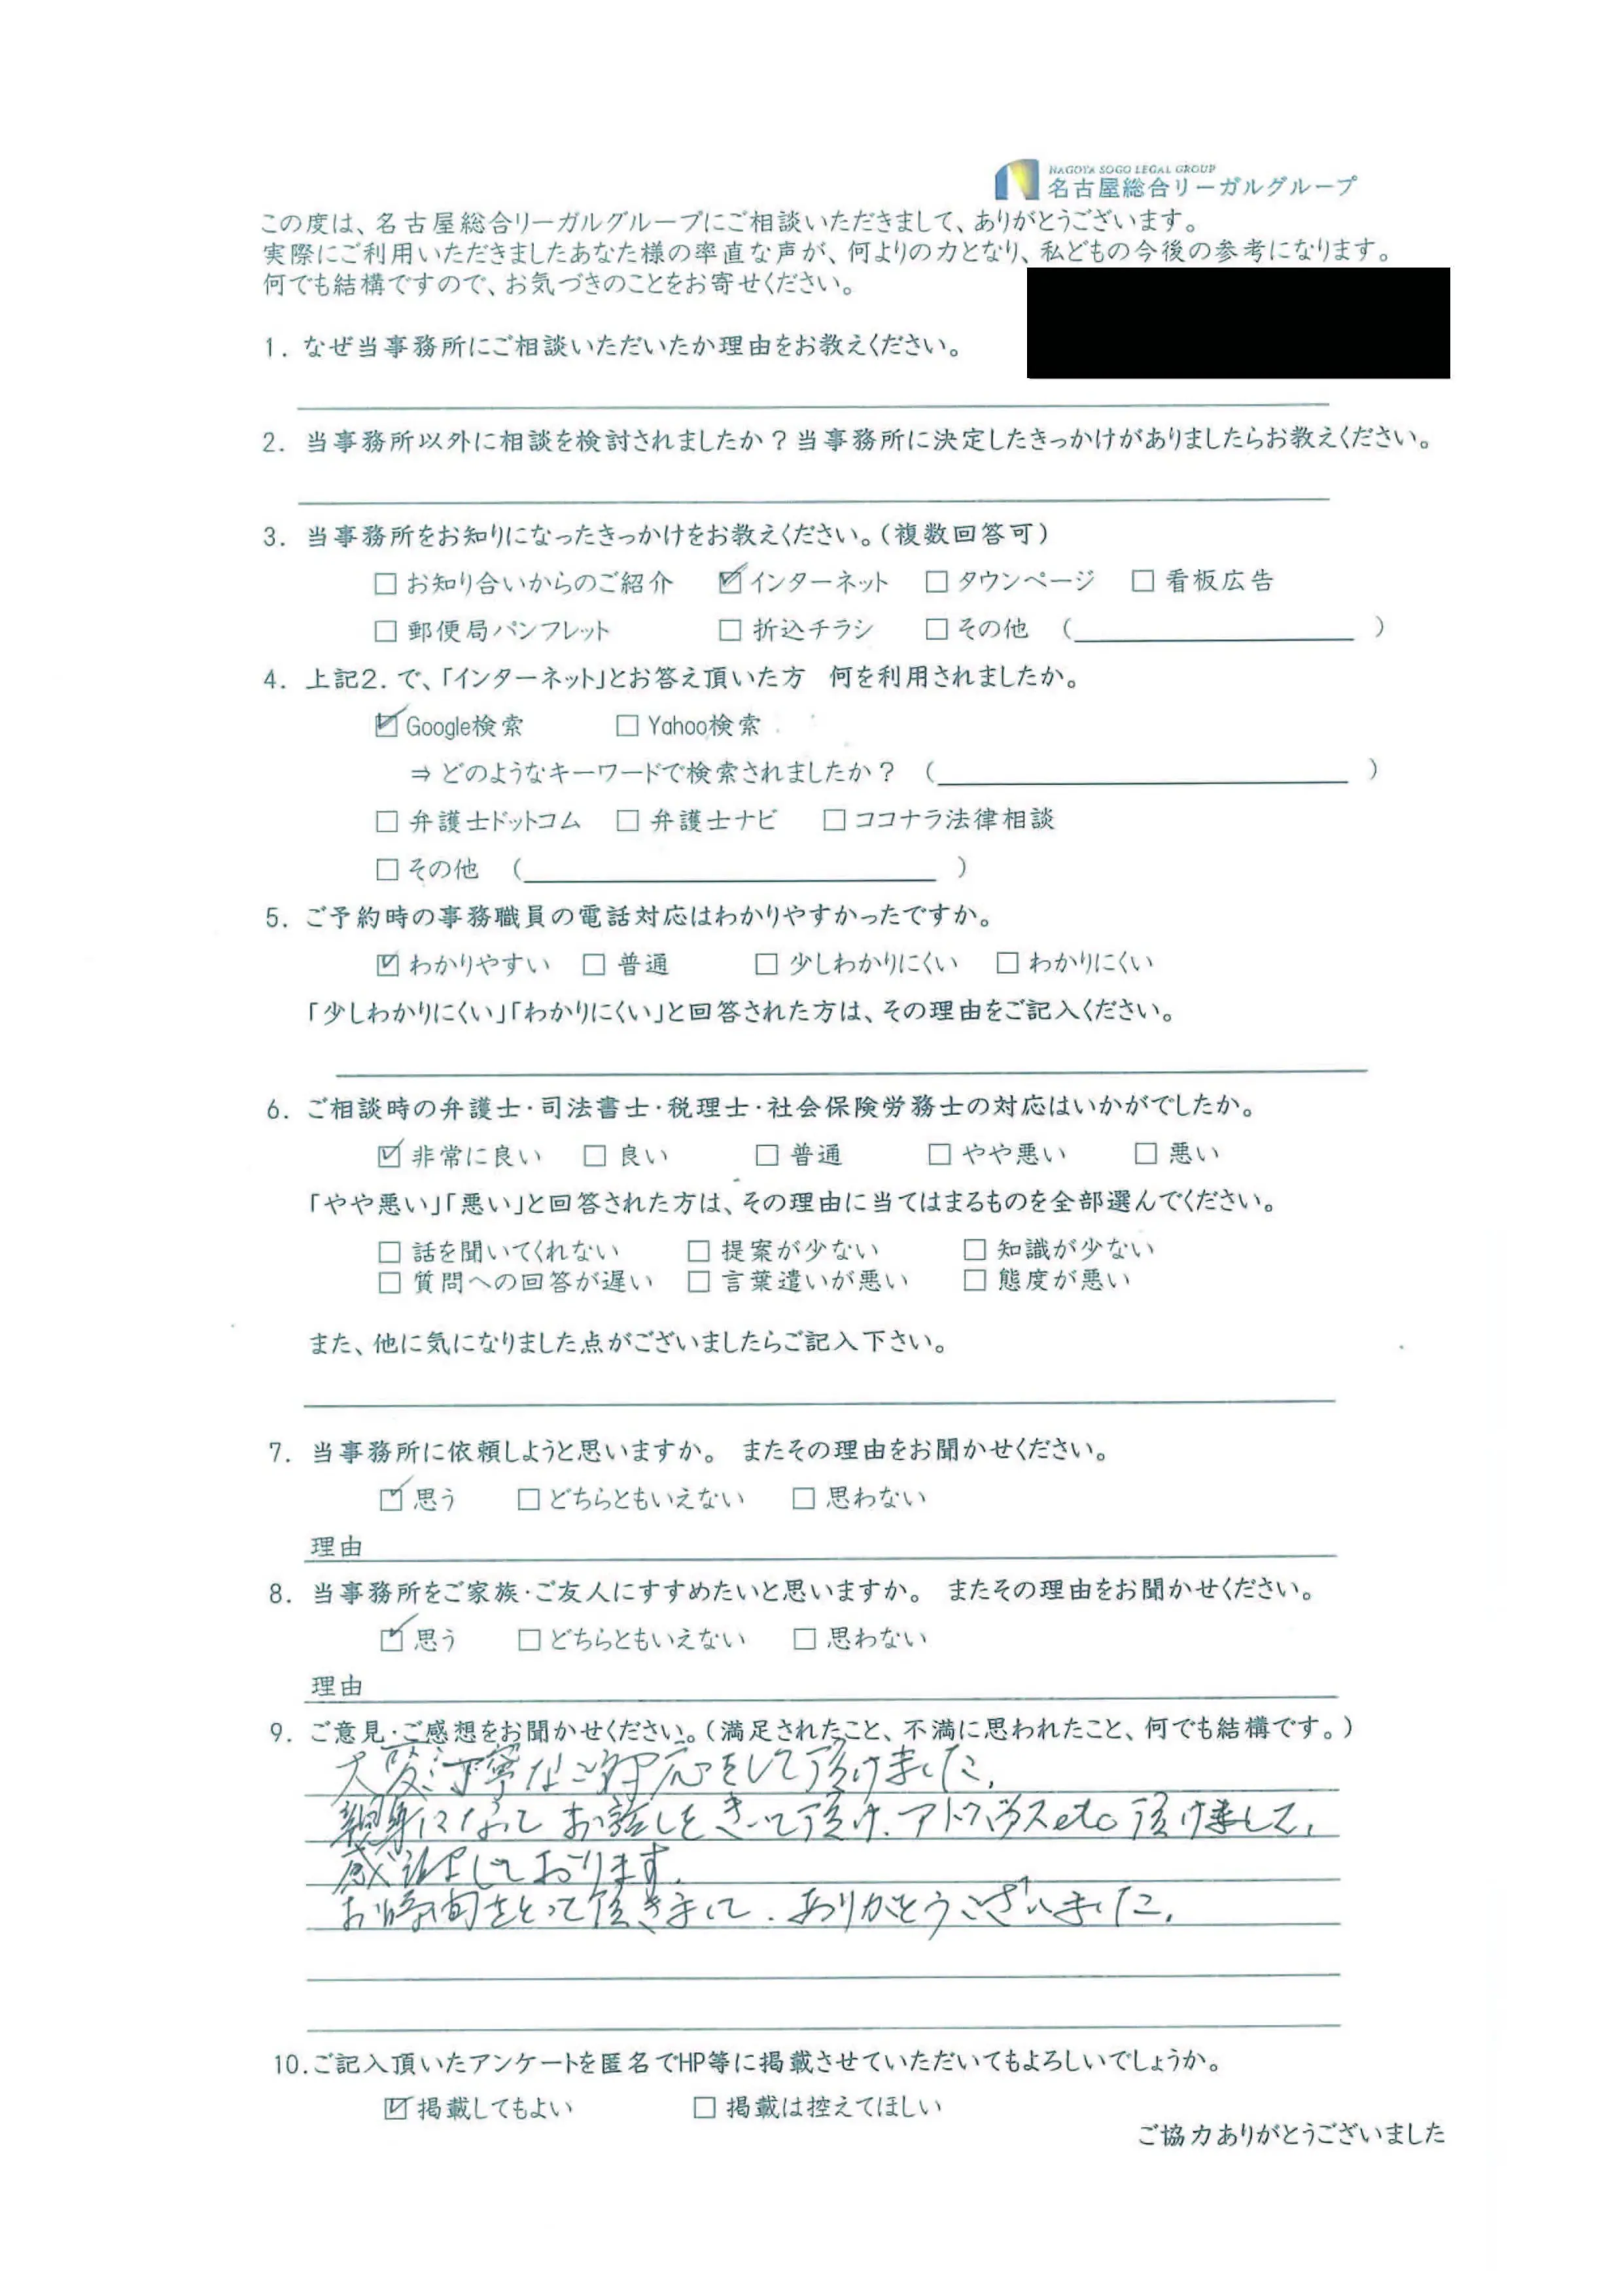 NAGOYA SOGO LEGAL GROUP
名古屋総合リーガルグループ
この度は、名古屋総合リーガルグループにご相談いただきまして、ありがとうございます。
実際にご利用いただきましたあなた様の率直な声が、何よりの力となり、私どもの今後の参考になります。
何でも結構ですので、お気づきのことをお寄せください。
1. なぜ当事務所にご相談いただいたか理由をお教えください。
2. 当事務所以外に相談を検討されましたか？当事務所に決定したきっかけがありましたらお教えください。
3. 当事務所をお知りになったきっかけをお教えください。（複数回答可）
□ お知り合いからのご紹介 ☑ インターネット □ タウンページ □ 看板広告
□ 郵便局パンフレット □ 折込チラシ □ その他 （ ）
4. 上記2. で、「インターネット」とお答え頂いた方 何を利用されましたか。
☑ Google検索 □ Yahoo検索
⇒ どのようなキーワードで検索されましたか？ （ ）
□ 弁護士ドットコム □ 弁護士ナビ □ ココナラ法律相談
□ その他 （ ）
5. ご予約時の事務職員の電話対応はわかりやすかったですか。
☑ わかりやすい □ 普通 □ 少しわかりにくい □ わかりにくい
「少しわかりにくい」「わかりにくい」と回答された方は、その理由をご記入ください。
6. ご相談時の弁護士・司法書士・税理士・社会保険労務士の対応はいかがでしたか。
☑ 非常に良い □ 良い □ 普通 □ やや悪い □ 悪い
「やや悪い」「悪い」と回答された方は、その理由に当てはまるものを全部選んでください。
□ 話を聞いてくれない □ 提案が少ない □ 知識が少ない
□ 質問への回答が遅い □ 言葉遣いが悪い □ 態度が悪い
また、他に気になりました点がございましたらご記入下さい。
7. 当事務所に依頼しようと思いますか。 またその理由をお聞かせください。
☑ 思う □ どちらともいえない □ 思わない
理由
8. 当事務所をご家族・ご友人にすすめたいと思いますか。 またその理由をお聞かせください。
☑ 思う □ どちらともいえない □ 思わない
理由
9. ご意見・ご感想をお聞かせください。（満足されたこと、不満に思われたこと、何でも結構です。）
大変丁寧なご対応をして頂けました。
親身になってお話しをきいて頂け、アドバイスetc頂けまして、
感謝しております。
お時間をとって頂きまして、ありがとうございました。
10.ご記入頂いたアンケートを匿名でHP等に掲載させていただいてもよろしいでしょうか。
☑ 掲載してもよい □ 掲載は控えてほしい
ご協力ありがとうございました